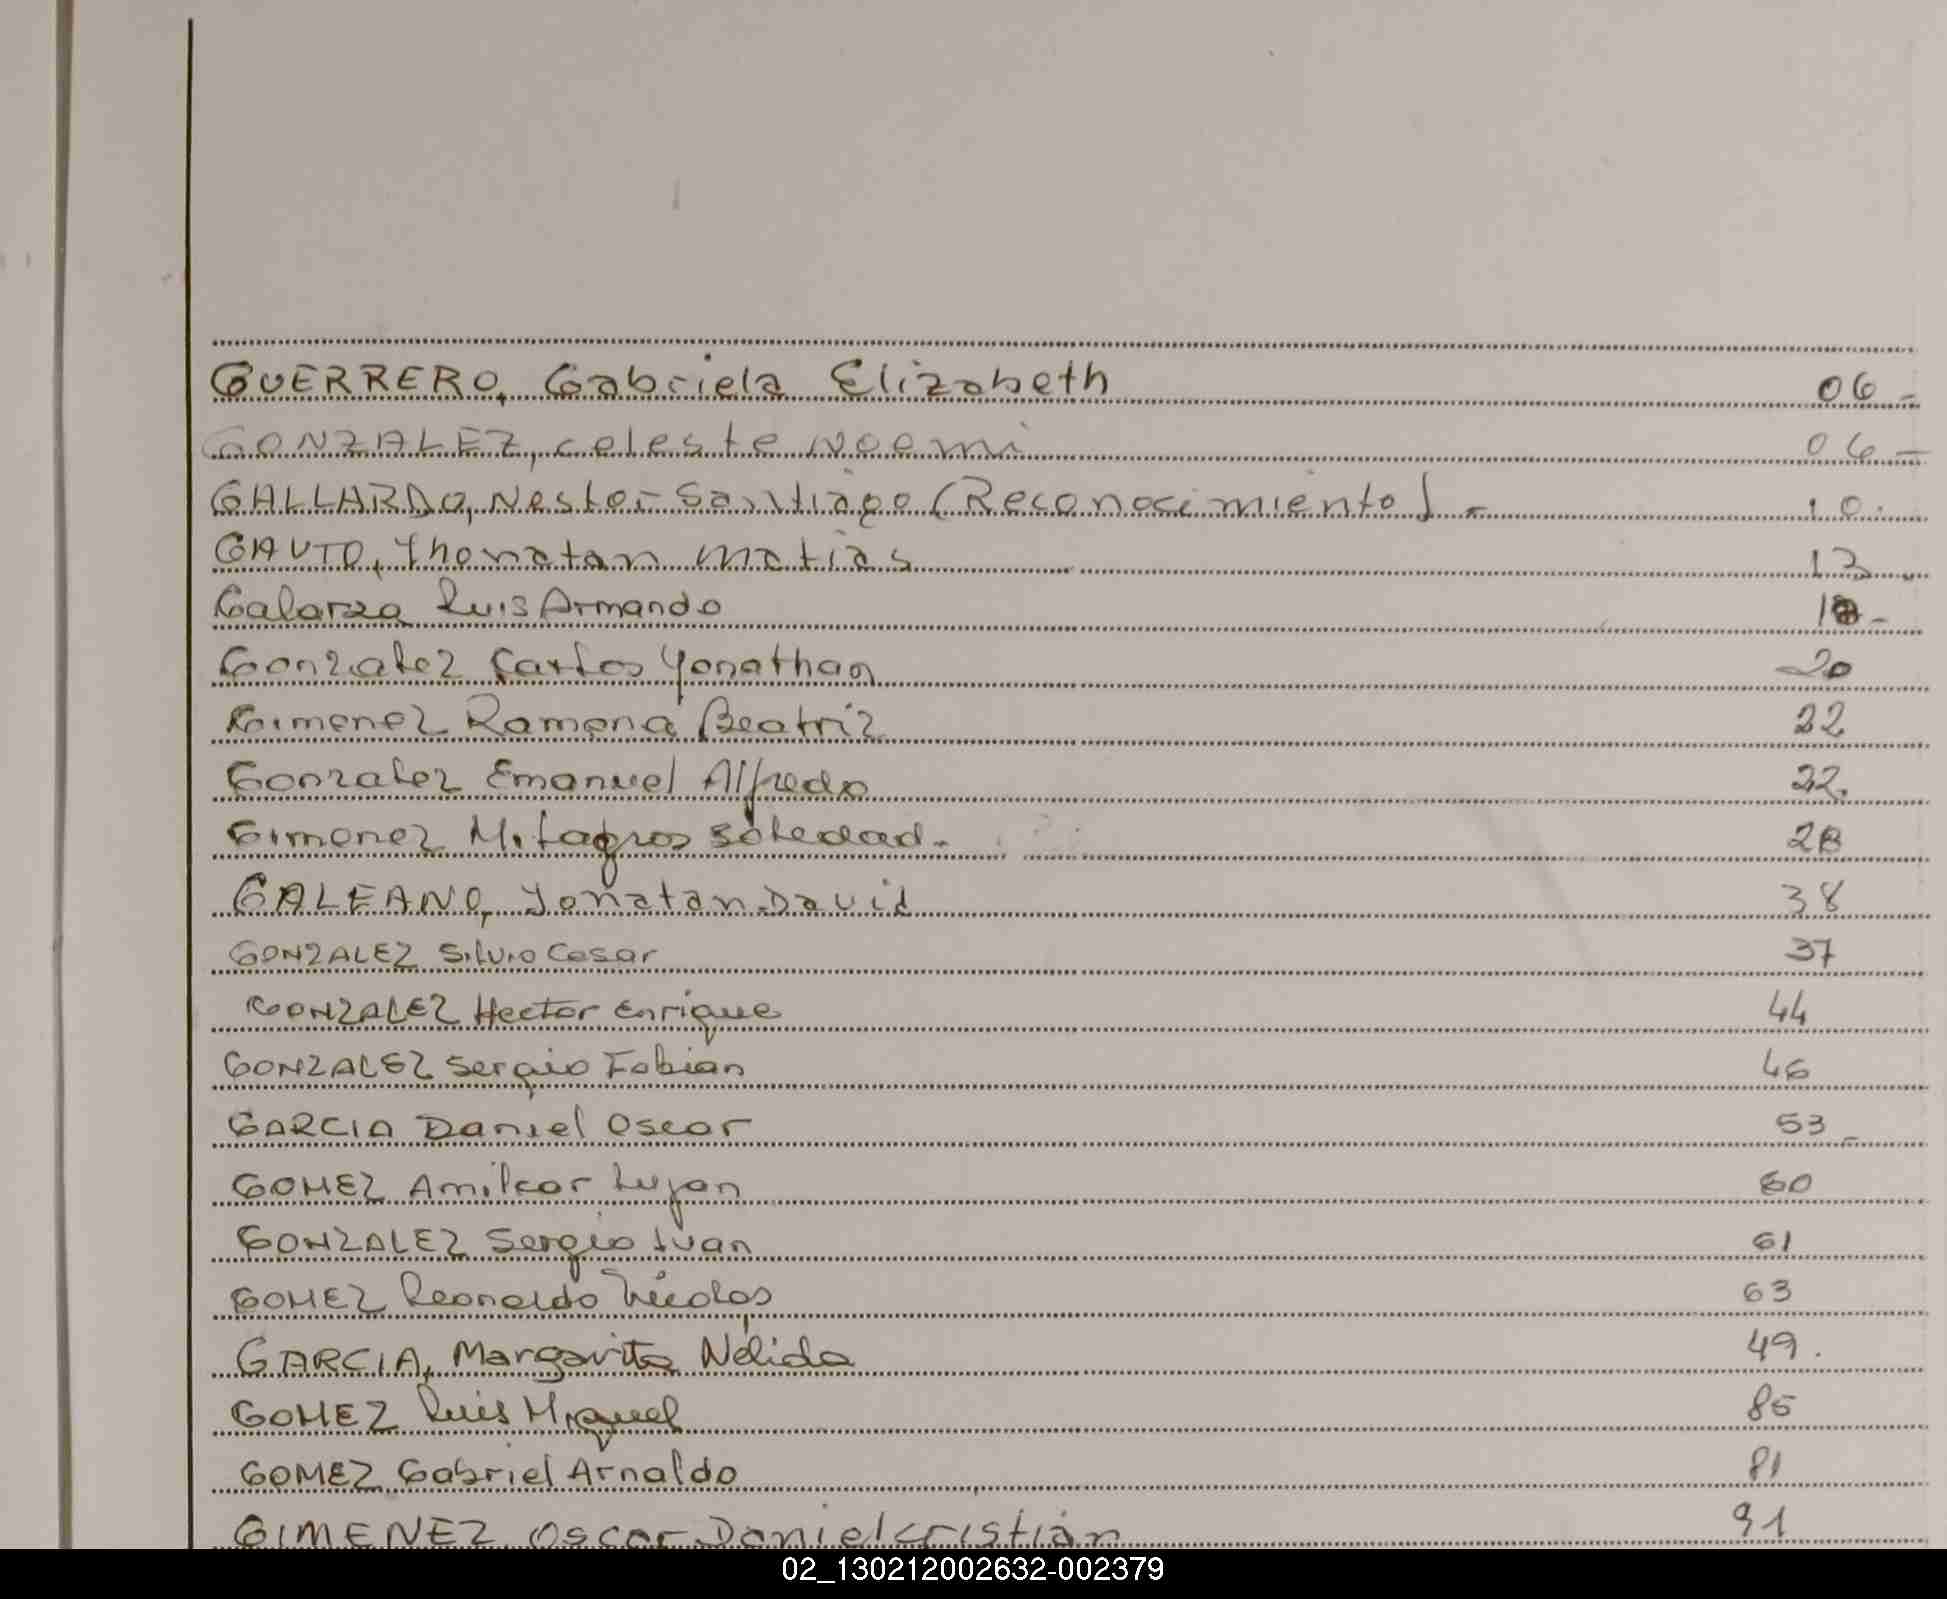 GUERRERO, Gabriela Elizabeth 06 -
GONZALEZ, celeste Noemi 06 -
GALLARDO, Nestor Santiago (Reconocimiento). - 10.
GAUTO, Jhonatan Matias 13 -
Galarza Luis Armando -
Gonzalez Carlos Yonathan 20
Gimenez Ramona Beatriz 22
Gonzalez Emanuel Alfredo 22.
Gimenez Milagros Soledad. 28
GALEANO, Jonatan David 38
GONZALEZ Silvio Cesar 37
GONZALEZ Hector Enrique 44
GONZALEZ Sergio Fabian 46
GARCIA Daniel Oscar 53 -
GOMEZ Amilcar Lujan 60
GONZALEZ Sergio Ivan 61
GOMEZ Leonaldo Nicolas 63
GARCIA, Margarita Nélida 49.
GOMEZ Luis Miguel 85
GOMEZ Gabriel Arnaldo 81
GIMENEZ Oscar Daniel cristian 91
02_130212002632-002379